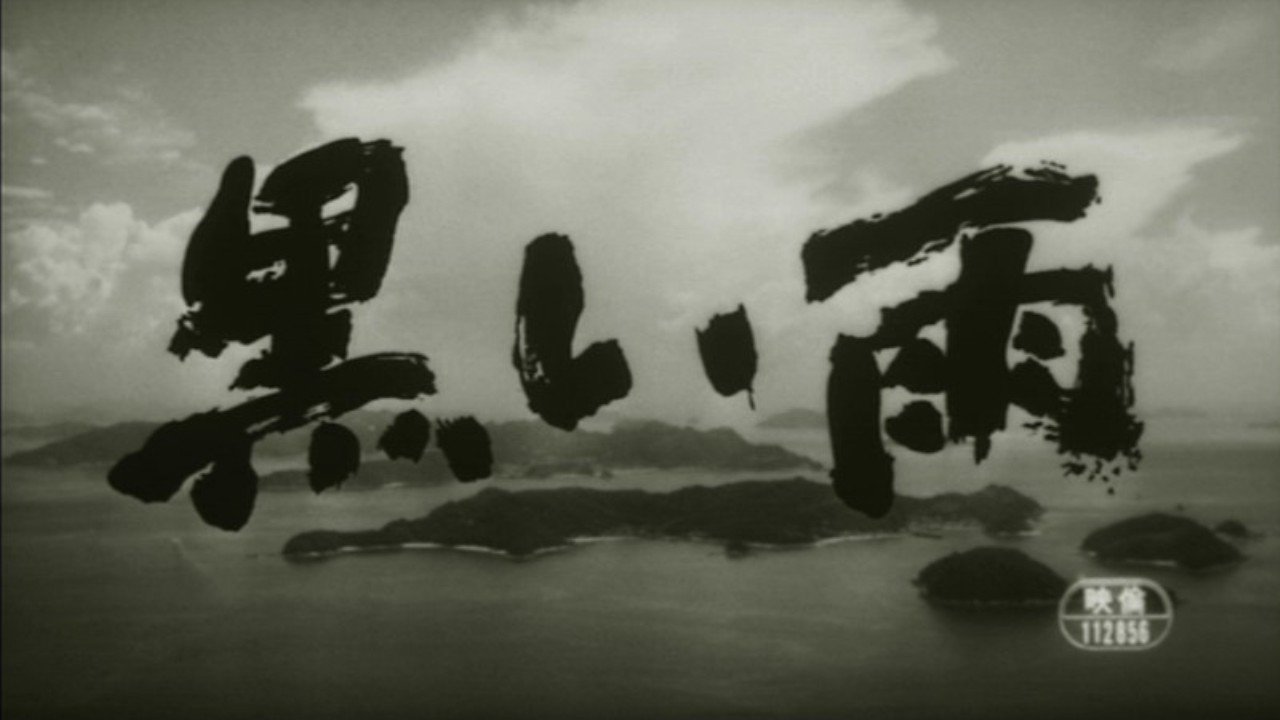 黒い雨
映倫
112856